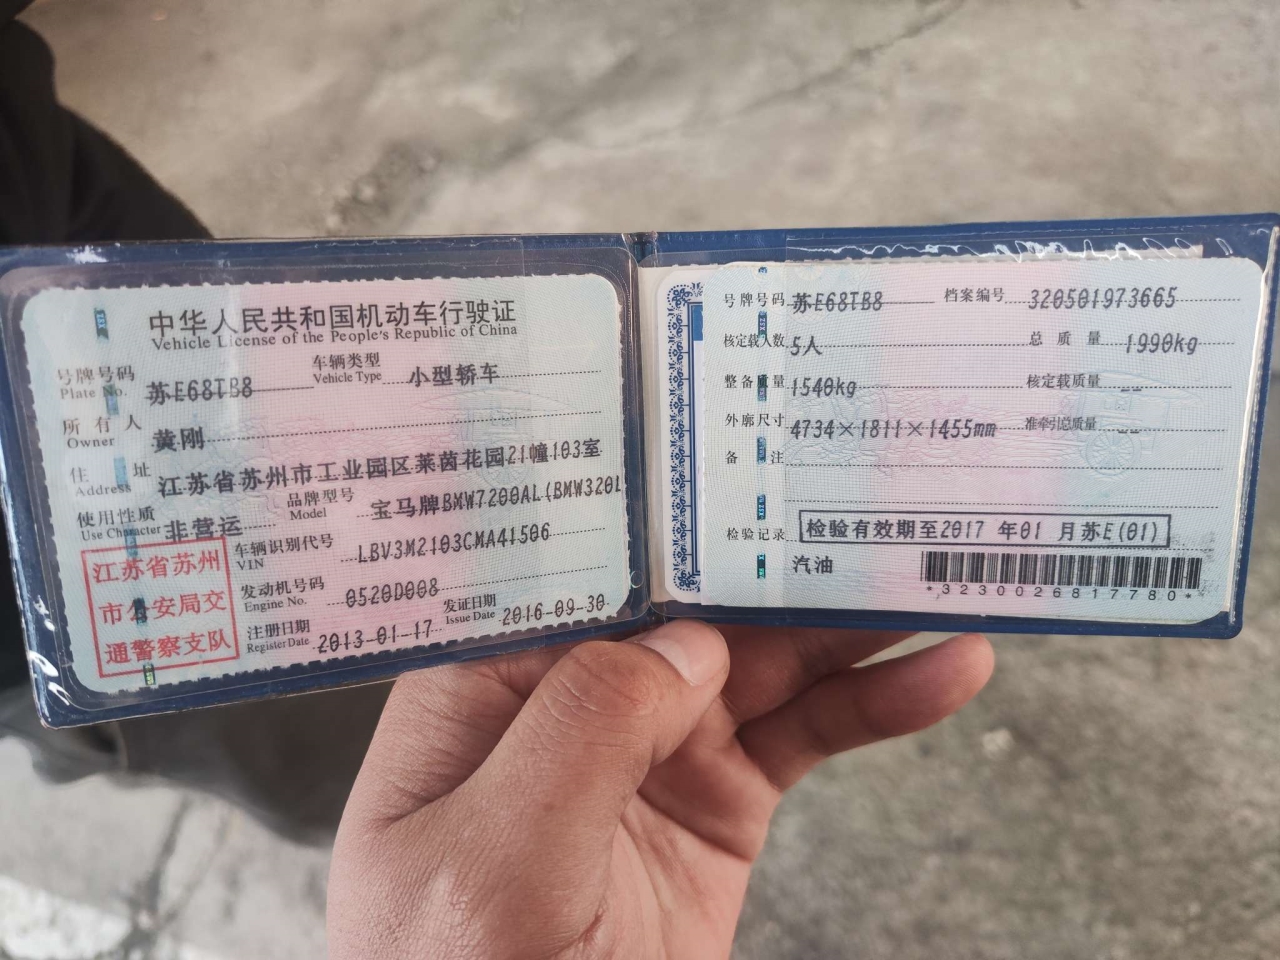 中华人民共和国机动车行驶证
Vehicle License of the People's Republic of China
号牌号码 苏E68TB8 车辆类型 小型轿车
Plate No. Vehicle Type
所有人 黄刚
Owner
住址 江苏省苏州市工业园区莱茵花园21幢103室
Address
使用性质 非营运 品牌型号 宝马牌BMW7200AL(BMW320L
Use Character Model
江苏省苏州
市公安局交
通警察支队
车辆识别代号 LBV3M2103CMA41506
VIN
发动机号码 0520D008
Engine No.
注册日期 2013-01-17 发证日期 2016-09-30
Register Date Issue Date
号牌号码 苏E68TB8 档案编号 320501973665
核定载人数 5人 总质量 1990kg
整备质量 1540kg 核定载质量 --
外廓尺寸 4734×1811×1455mm 准牵引总质量 --
备注
检验记录 检验有效期至2017 年01 月苏E(01)
汽油
*3230026817780*